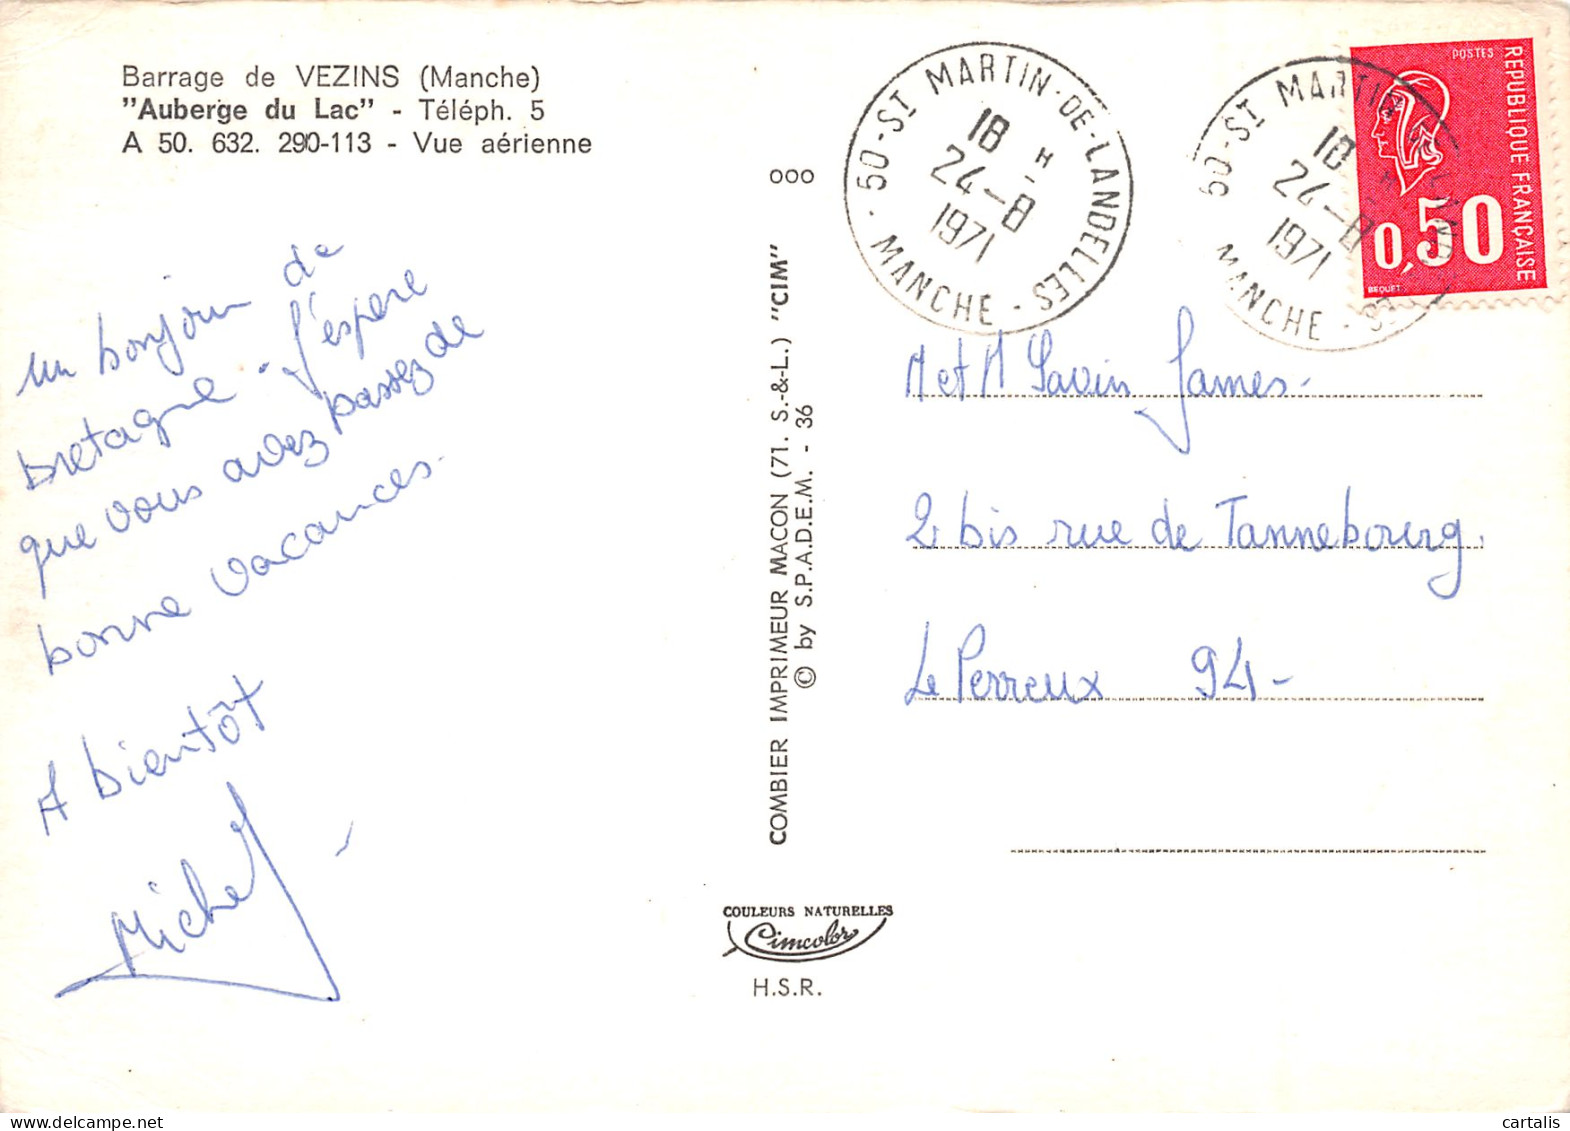 Barrage de VEZINS (Manche)
"Auberge du Lac" - Téléph. 5
A 50. 632. 290-113 - Vue aérienne
un bonjour de
bretagne. J'espère
que vous avez passez de
bonne vacances.
A bientôt
Michel
000
COMBIER IMPRIMEUR MACON (71. S.-&-L.) "CIM"
© by S.P.A.D.E.M. - 36
COULEURS NATURELLES
Cimcolor
H.S.R.
50-ST MARTIN-DE-LANDELLES
18 H
24-8
1971
MANCHE
50-ST MARTIN
18 H
24-8
1971
MANCHE
POSTES
REPUBLIQUE FRANÇAISE
0,50
BEQUET
M et M Savin James.
2 bis rue de Tannebourg.
Le Perreux 94-
cartalis